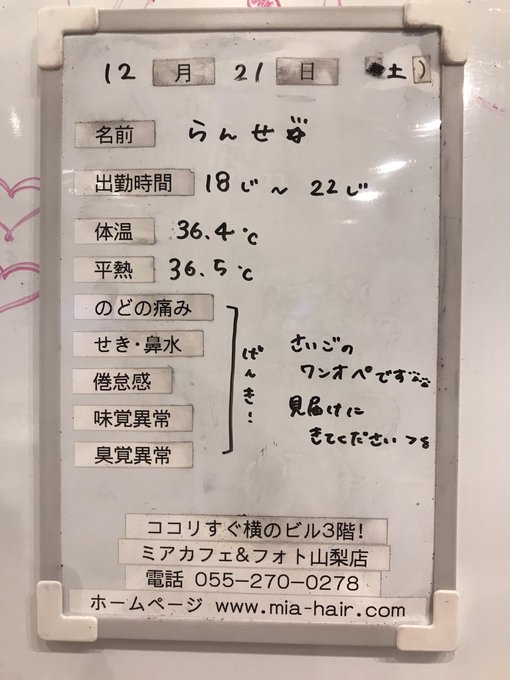 12 月 21 日 (土)
名前 らんぜ
出勤時間 18じ~22じ
体温 36.4℃
平熱 36.5℃
のどの痛み
せき・鼻水
倦怠感
味覚異常
臭覚異常
げんき!
さいごの
ワンオペです
見届けに
きてください
ココリすぐ横のビル3階!
ミアカフェ&フォト山梨店
電話 055-270-0278
ホームページ www.mia-hair.com